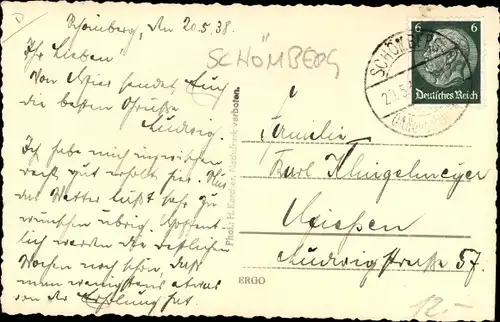 Schömberg, den 20.5.38.
Ihr Lieben
Von hier sendet Euch
die besten Grüße
Ludwig.
Ich habe mich inzwischen
recht gut erholt hier. Nur
das Wetter läßt sehr zu
wünschen übrig. Hoffent-
lich werden die restlichen
Wochen noch schön, daß
man wenigstens etwas
von der Erholung hat.
SCHÖMBERG
Photo H. Karcher. Nachdruck verboten.
ERGO
6 6
Deutsches Reich
SCHÖMBERG
20.5
Familie
Karl Klingelmeyer
Gießen
Ludwigstraße 57.
12.-